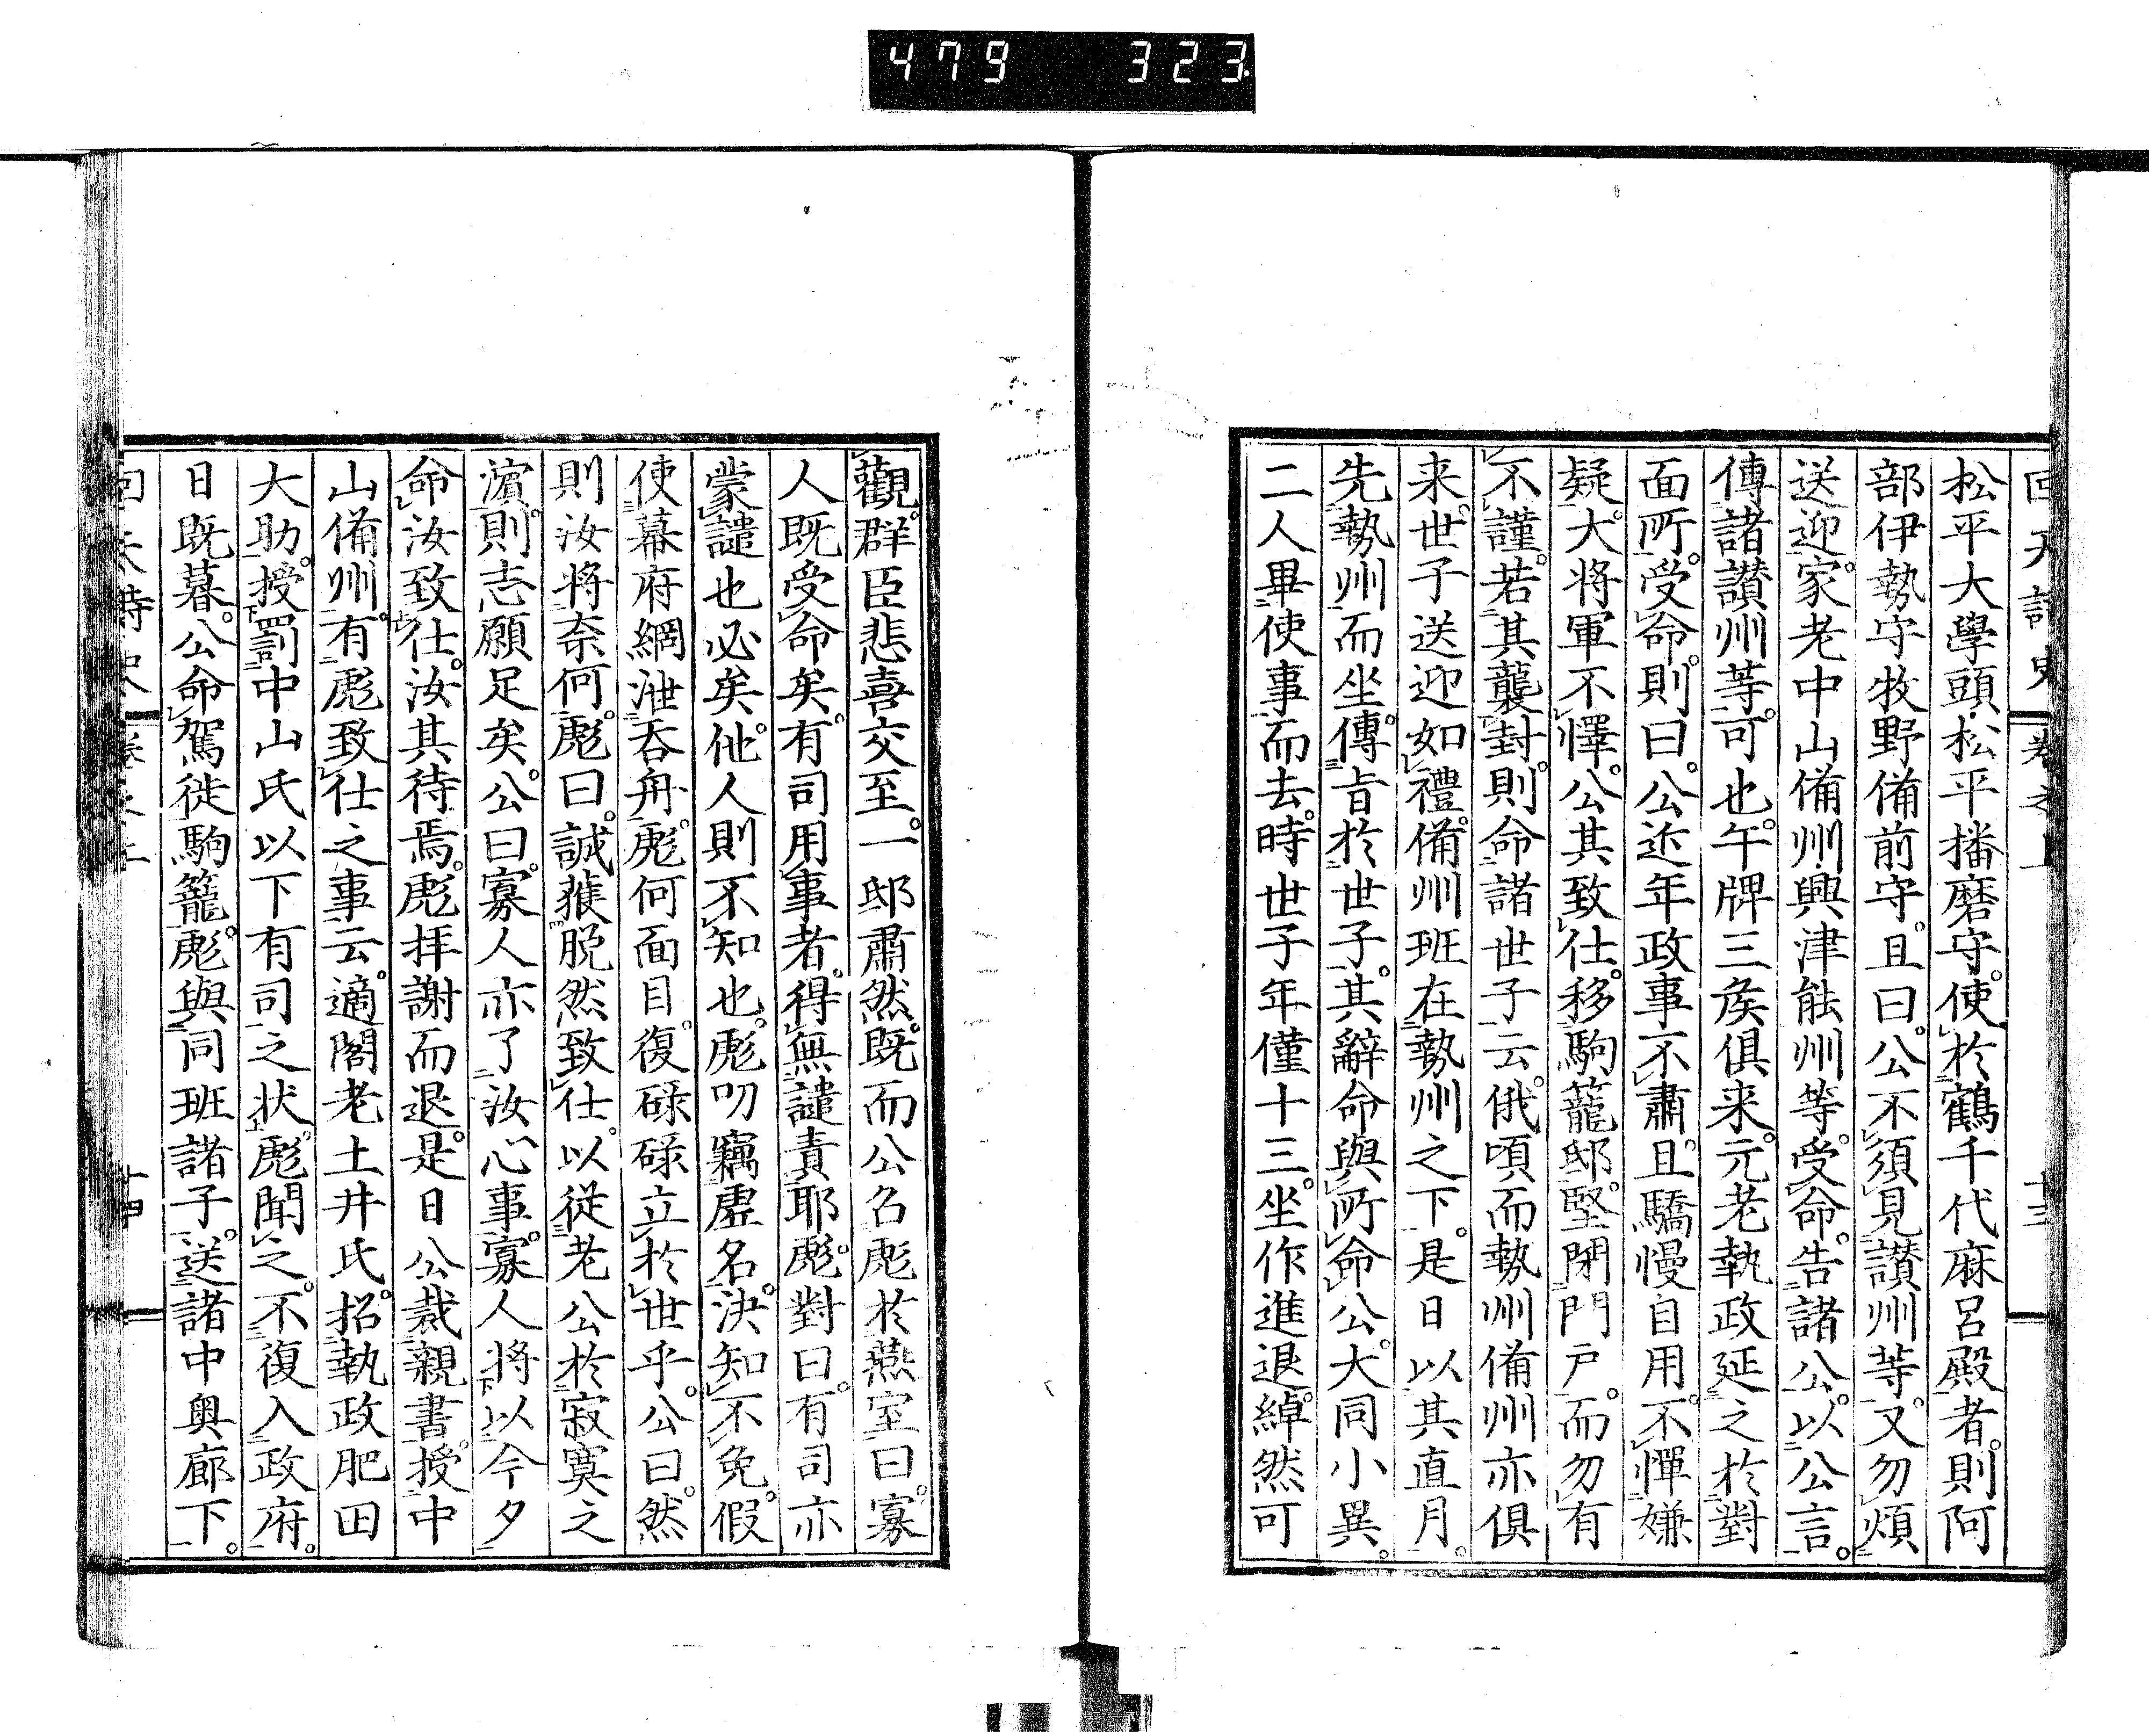 479 323
松平大學頭松平播磨守。使於鶴千代麻呂殿者。則阿
部伊勢守牧野備前守。且曰。公不須見讃州等。又勿煩
送迎。家老中山備州興津能州等。受命。告諸公。以公言。
傳諸讃州等。可也。午牌三矦俱来。元老執政延之於對
面所。受命。則曰。公近年政事不肅。且驕慢自用。不憚嫌
疑。大将軍不懌。公其致仕。移駒籠邸。堅閉門戸。而勿有
不謹。若其襲封。則命諸世子云。俄頃而勢州備州亦俱
来。世子送迎如禮。備州班在勢州之下。是日以其直月。
先勢州而坐。傳旨於世子。其辭命與所命公。大同小異。
二人畢使事而去。時世子年僅十三。坐作進退。綽然可
觀。群臣悲喜交至。一邸肅然。既而公召彪於燕室曰。寡
人既受命矣。有司用事者。得無譴責耶。彪對曰。有司亦
蒙譴也必矣。他人則不知也。彪叨竊虚名。決知不免。假
使幕府網泄呑舟。彪何面目。復碌碌立於世乎。公曰。然
則汝将奈何。彪曰。誠獲脱然致仕。以從老公於寂寞之
濵。則志願足矣。公曰。寡人亦了汝心事。寡人将以今夕
命汝致仕。汝其待焉。彪拝謝而退。是日公裁親書。授中
山備州。有彪致仕之事云。適閣老土井氏。招執政肥田
大助。授罰中山氏以下有司之状。彪聞之。不復入政府。
日既暮。公命駕徙駒籠。彪與同班諸子。送諸中奥廊下。